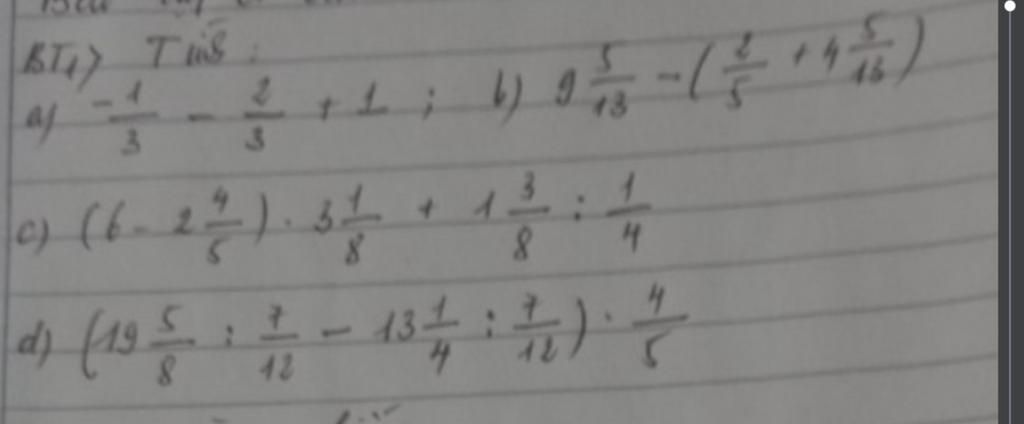 BT1) Tính:
a) -1/3 - 2/3 + 1 ; b) 9 5/13 - (2/5 + 4 5/13)
c) (6 - 2 4/5) . 3 1/8 + 1 3/8 : 1/4
d) (19 5/8 : 7/12 - 13 1/4 : 7/12) . 4/5